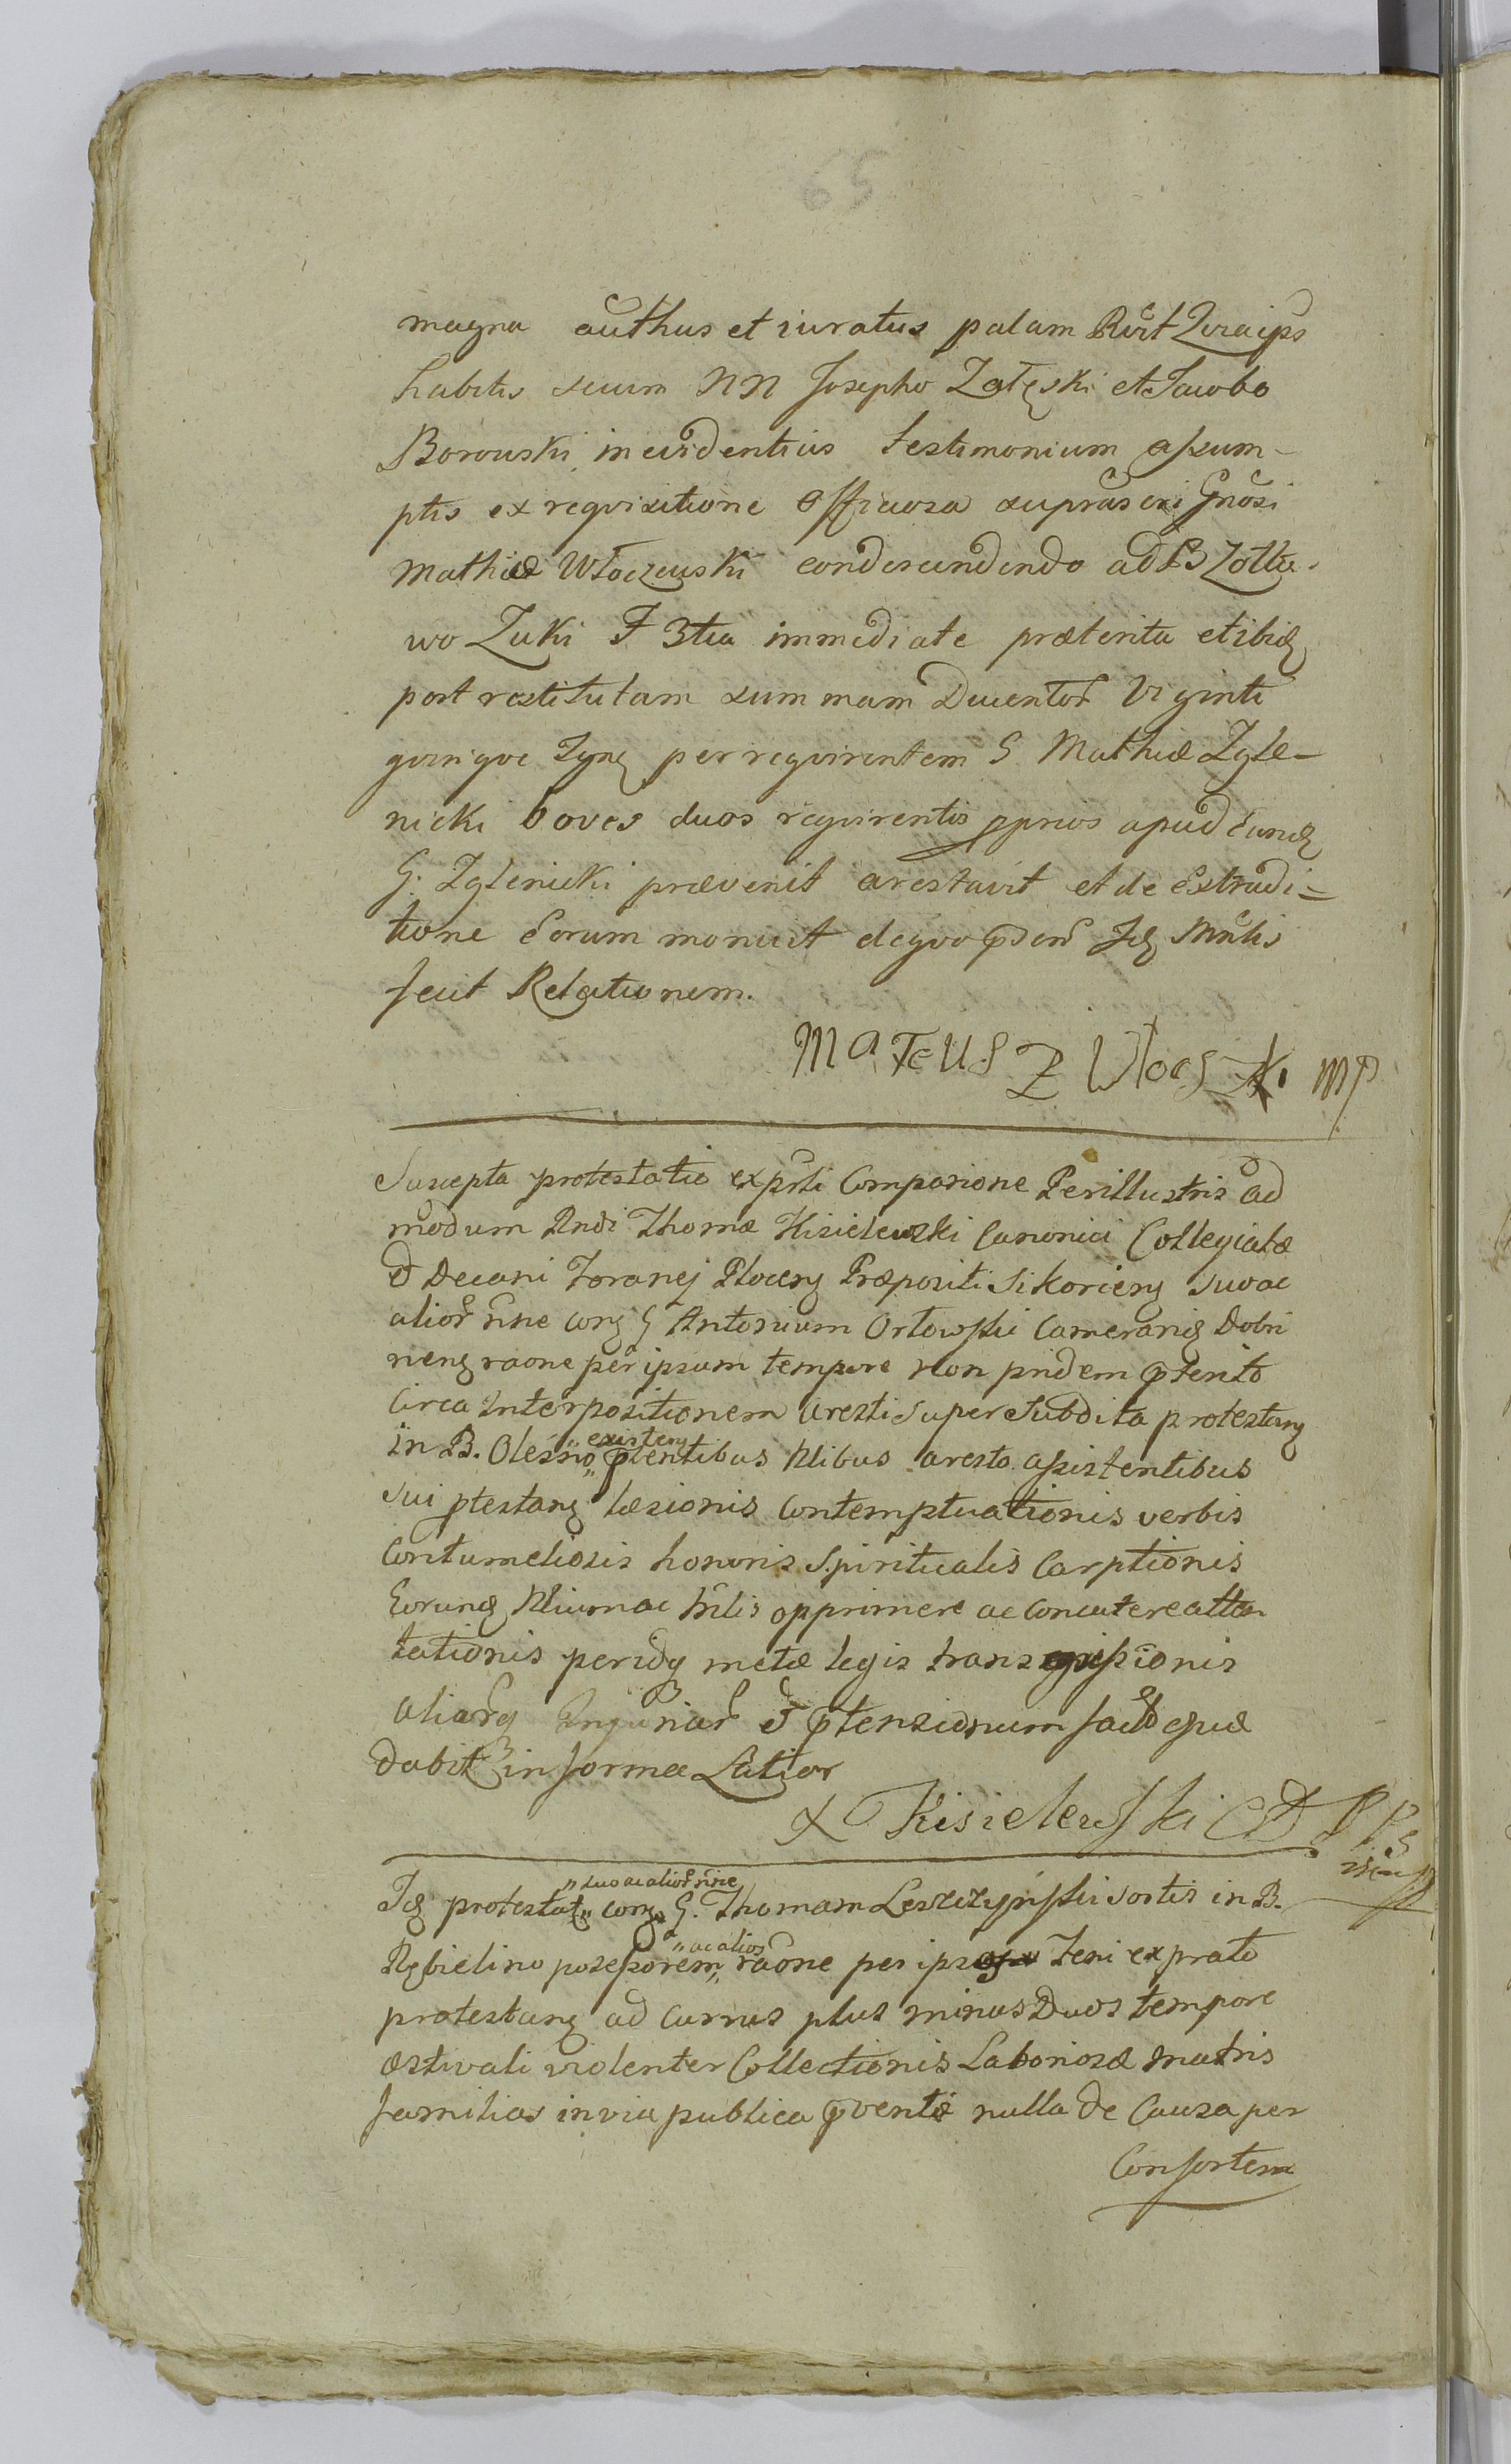 65
magna auth̃us et iuratus palam Rc̃it Quia ips
habitis secum NN Josepho Załęski et Jacobo
Borowski in evidentius testimonium assum-
ptis ex requisitione officiosa suprascri Gnosi
Mathiæ Włoczewski condescendendo ad B Zółto-
wo Zuki F 3tia immediate præterita et ibiq
post restitutam summam Ducentor̃ Viginti
quinque per requirentem G Mathiæ Zgle-
nicki boves duos requirentis pprios apud eund
G. Zglenicki prævenit arestavit et de Extradi=
tione Eorum monuit de quo Id Mnlis
fecit Relationem.
MATEUS Z Włocz ki mp
Suscepta protestatio ex psti Comparione Perillustris ad
modum Rndi Thomæ Kisielewski Canonici Collegiatæ
et Decani Foranej Plocen Præpositi Sikoricen suo ac
alior̃ nñe con G Antonium Orłowski Cameranq Dobri
nen raone per ipsum tempore non pridem pterito
Circa Interpositionem aresti super Subdita protestan
in B. Olesno „existen„ pventibus Nlibus aresto assistentibus
sui ptestan læsionis Contemptuationis verbis
Contumeliosis honoris Spiritualis Carptionis
Eorund Nlium ac Mnlis opprimere ac Concutere atten
tationis perid metæ legis transgressionis
aliarq Injuriar̃ et ptensionum fact quæ
dabit in forma Latior
X Kisielewski CD P P S
Id protestat „suo ac alior̃ nñie„ con G. Thomam Leszczyński sortis in B.
Rębielino possessorem „ac alios„ raone per ipsos feni ex prato
protestan ad Currus plus minus Duos tempore
æstivali violenter Collectionis Laboriosæ matris
familias in via publica pventæ nulla de Causa per
Consortem